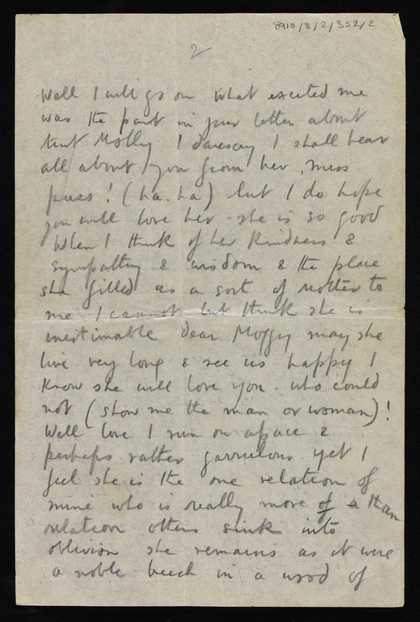 8910/3/2/352/2
2
Well I will go on what excited me
was the part in your letter about
Aunt Molly I daresay I shall hear
all about you from her, miss
puss! (ha-ha) but I do hope
you will love her - she is so good
When I think of her kindness &
sympathy & wisdom & the place
she filled as a sort of mother to
me I cannot but think she is
inestimable dear Moggy may she
live very long & see us happy I
know she will love you. who could
not (show me the man or woman)!
Well love I run on apace &
perhaps rather garrulous yet I
feel she is the one relation of
mine who is really more of a than
relation others sink into
oblivion she remains as it were
a noble beech in a wood of